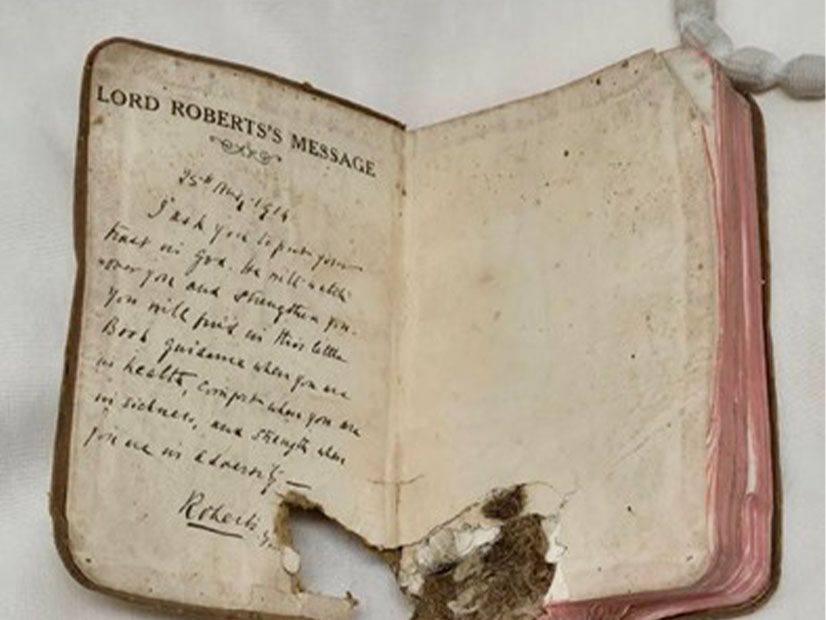 LORD ROBERTS'S MESSAGE
25th Aug. 1914
I ask you to put your
trust in God. He will watch
over you and strengthen you.
You will find in this little
Book guidance when you are
in health, comfort when you are
in sickness, and strength when
you are in adversity.—
Roberts